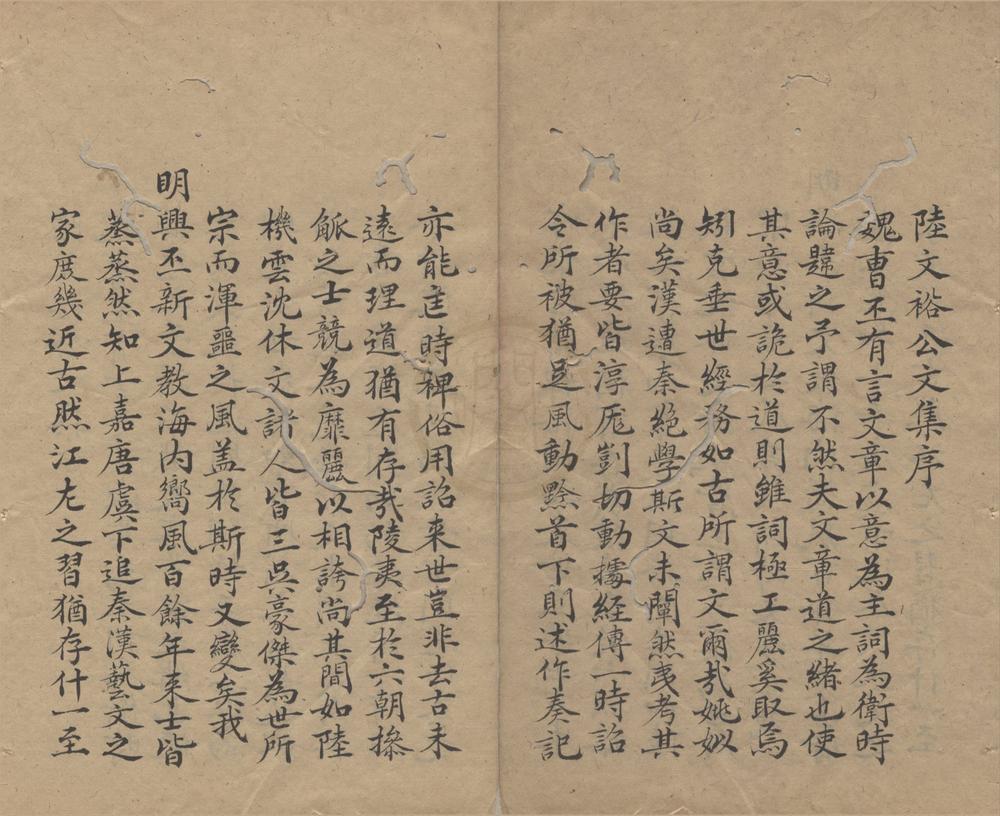 陸文裕公文集序
魏曹丕有言文章以意為主詞為衛時
論韙之予謂不然夫文章道之緒也使
其意或詭於道則雖詞極工麗奚取焉
矧克垂世經務如古所謂文爾哉姚姒
尚矣漢遭秦絕學斯文未闡然夷考其
作者要皆淳厖剴切動據經傳一時詔
令所被猶足風動黔首下則述作奏記
亦能匡時稗俗用詔來世豈非去古未
遠而理道猶有存哉陵夷至於六朝操
觚之士競為靡麗以相誇尚其間如陸
機雲沈休文計人皆三吳豪傑為世所
宗而渾噩之風盖於斯時又變矣我
明興丕新文教海內嚮風百餘年来士皆
蒸蒸然知上嘉唐虞下追秦漢藝文之
家庻幾近古然江左之習猶存什一至